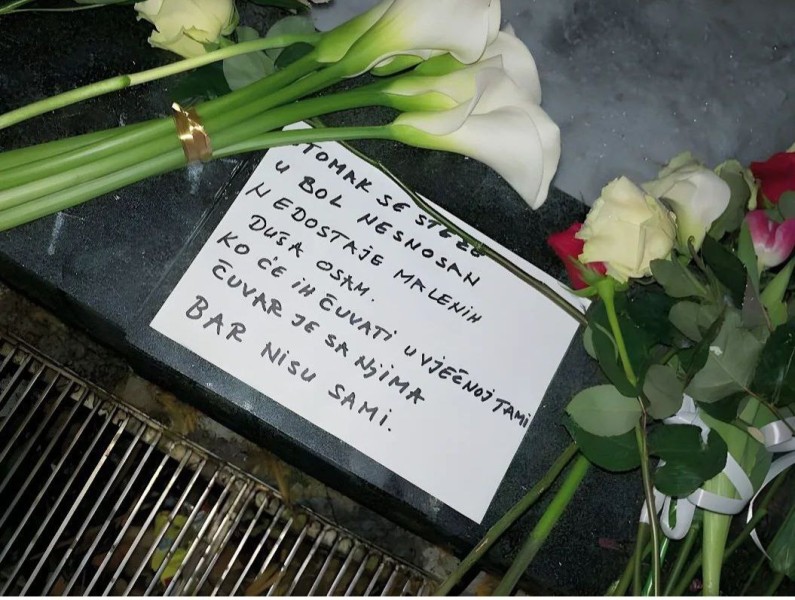 STOMAK SE STEŽE
U BOL NESNOSAN
NEDOSTAJE MALENIH
DUŠA OSAM.
KO ĆE IH ČUVATI U VJEČNOJ TAMI
ČUVAR JE SA NJIMA
BAR NISU SAMI.